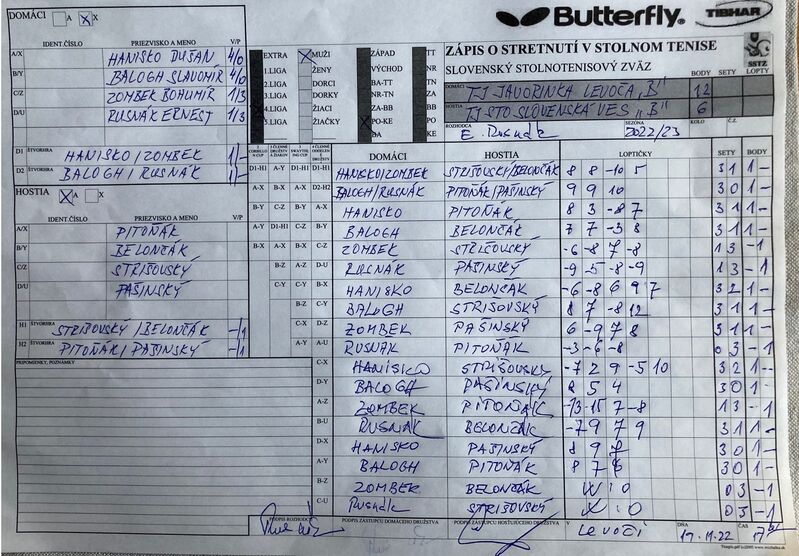 DOMÁCI A X
IDENT.ČÍSLO PRIEZVISKO A MENO V/P
A/X HANISKO DUŠAN 4/0
B/Y BALOGH SLAVOMÍR 4/0
C/Z ZOMBEK BOHUMÍR 1/3
D/U RUSNÁK ERNEST 1/3
D1 ŠTVORHRA HANISKO/ZOMBEK 1/-
D2 ŠTVORHRA BALOGH/RUSNÁK 1/-
HOSTIA A X
IDENT.ČÍSLO PRIEZVISKO A MENO V/P
A/X PITOŇÁK
B/Y BELONČÁK
C/Z STRIŠOVSKÝ
D/U PAŠINSKÝ
H1 ŠTVORHRA STRIŠOVSKÝ/BELONČÁK -/1
H2 ŠTVORHRA PITOŇÁK/PAŠINSKÝ -/1
PRIPOMIENKY, POZNÁMKY
Butterfly TIBHAR
ZÁPIS O STRETNUTÍ V STOLNOM TENISE
SLOVENSKÝ STOLNOTENISOVÝ ZVÄZ
SSTZ
EXTRA MUŽI ZÁPAD TT
1.LIGA ŽENY VÝCHOD NR
2.LIGA DORCI BA-TT TN
3.LIGA DORKY NR-TN ZA
4.LIGA ŽIACI ZA-BB BB
5.LIGA ŽIAČKY PO-KE PO
BA KE
BODY SETY LOPTY
DOMÁCI TJ JAVORINKA LEVOČA "B" 12
HOSTIA TJ STO SLOVENSKÁ VES "B" 6
ROZHODCA E. Rusnák SEZÓNA 2022/23 KOLO Č.Z.
DOMÁCI HOSTIA LOPTIČKY SETY BODY
D1-H1 A-Y D1-H1 D1-H1 HANISKO/ZOMBEK STRIŠOVSKÝ/BELONČÁK 8 8 -10 5 3 1 1 -
A-X B-X A-X D2-H2 BALOGH/RUSNÁK PITOŇÁK/PAŠINSKÝ 9 9 10 3 0 1 -
B-Y C-Z B-Y A-X HANISKO PITOŇÁK 8 3 -8 7 3 1 1 -
A-Y D1-H1 C-Z B-Y BALOGH BELONČÁK 7 7 -3 8 3 1 1 -
B-X A-X D1-H1 C-Z ZOMBEK STRIŠOVSKÝ -6 -8 7 -8 1 3 - 1
B-Z A-Z D-U RUSNÁK PAŠINSKÝ -9 5 -8 -9 1 3 - 1
C-Y B-X HANISKO BELONČÁK -6 -8 6 9 7 3 2 1 -
B-Z C-Y BALOGH STRIŠOVSKÝ 8 7 -8 12 3 1 1 -
C-X D-Z ZOMBEK PAŠINSKÝ 6 -9 7 8 3 1 1 -
A-Y A-U RUSNÁK PITOŇÁK -3 -6 -8 0 3 - 1
C-X HANISKO STRIŠOVSKÝ -7 2 9 -5 10 3 2 1 -
D-Y BALOGH PAŠINSKÝ 5 4 3 0 1 -
A-Z ZOMBEK PITOŇÁK -13 -15 7 -8 1 3 - 1
B-U RUSNÁK BELONČÁK -7 9 7 9 3 1 1 -
D-X HANISKO PAŠINSKÝ 8 9 3 0 1 -
A-Y BALOGH PITOŇÁK 8 7 3 0 1 -
B-Z ZOMBEK BELONČÁK W:O 0 3 - 1
C-U Rusnák STRIŠOVSKÝ 0 3 - 1
PODPIS ROZHODCU PODPIS ZÁSTUPCU DOMÁCEHO DRUŽSTVA PODPIS ZÁSTUPCU HOSŤUJÚCEHO DRUŽSTVA V Levoči DŇA 19.11.22 ČAS